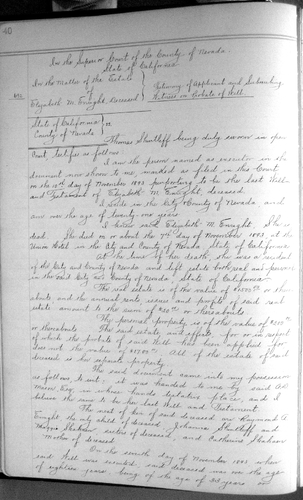 40
In the Superior Court of the County of Nevada
State of California
In the Matter of the Estate
of
Elizabeth M. Enright, deceased
Testimony of Applicant and Subscribing
Witness on Probate of Will
State of California
County of Nevada } ss
Thomas Shurtleff being duly sworn in open
Court, testifies as follows:
I am the person named as executor in the
document now shown to me, marked as filed in this Court
on the 10th day of November 1893 purporting to be the last Will
and Testament of Elizabeth M. Enright, deceased.
I reside in the City & County of Nevada and
am over the age of twenty-one years
I knew said Elizabeth M. Enright, She is
dead. She died on or about the 7th day of November 1893 at the
Union Hotel in the City and County of Nevada, State of California.
At the time of her death, she was a resident
of the City and County of Nevada and left estate both real and personal
in the said City and County of Nevada, State of California.
The real estate is of the value of $
abouts and the annual rents, issues and profits of said real
estate amount to the sum of $ or thereabouts
The personal property is of the value of $
or thereabouts. The said estate and effects, for or in respect
of which the probate of said Will has been applied for
do not exceed the value of $ All of the estate of said
deceased is her separate property
The said document came into my possession
as follows to wit: it was handed to me by said
in whose hands testatrix place, and I
believe the same to be her last Will and Testament
The next of kin of said deceased are Raymond A.
Enright the only child of deceased, Johanna Shurtleff and
Maggie sisters of deceased, and Catherine
Mother of deceased
On the seventh day of November 1893 when
said Will was executed said deceased was over the age
of eighteen years being of the age of 33 years or